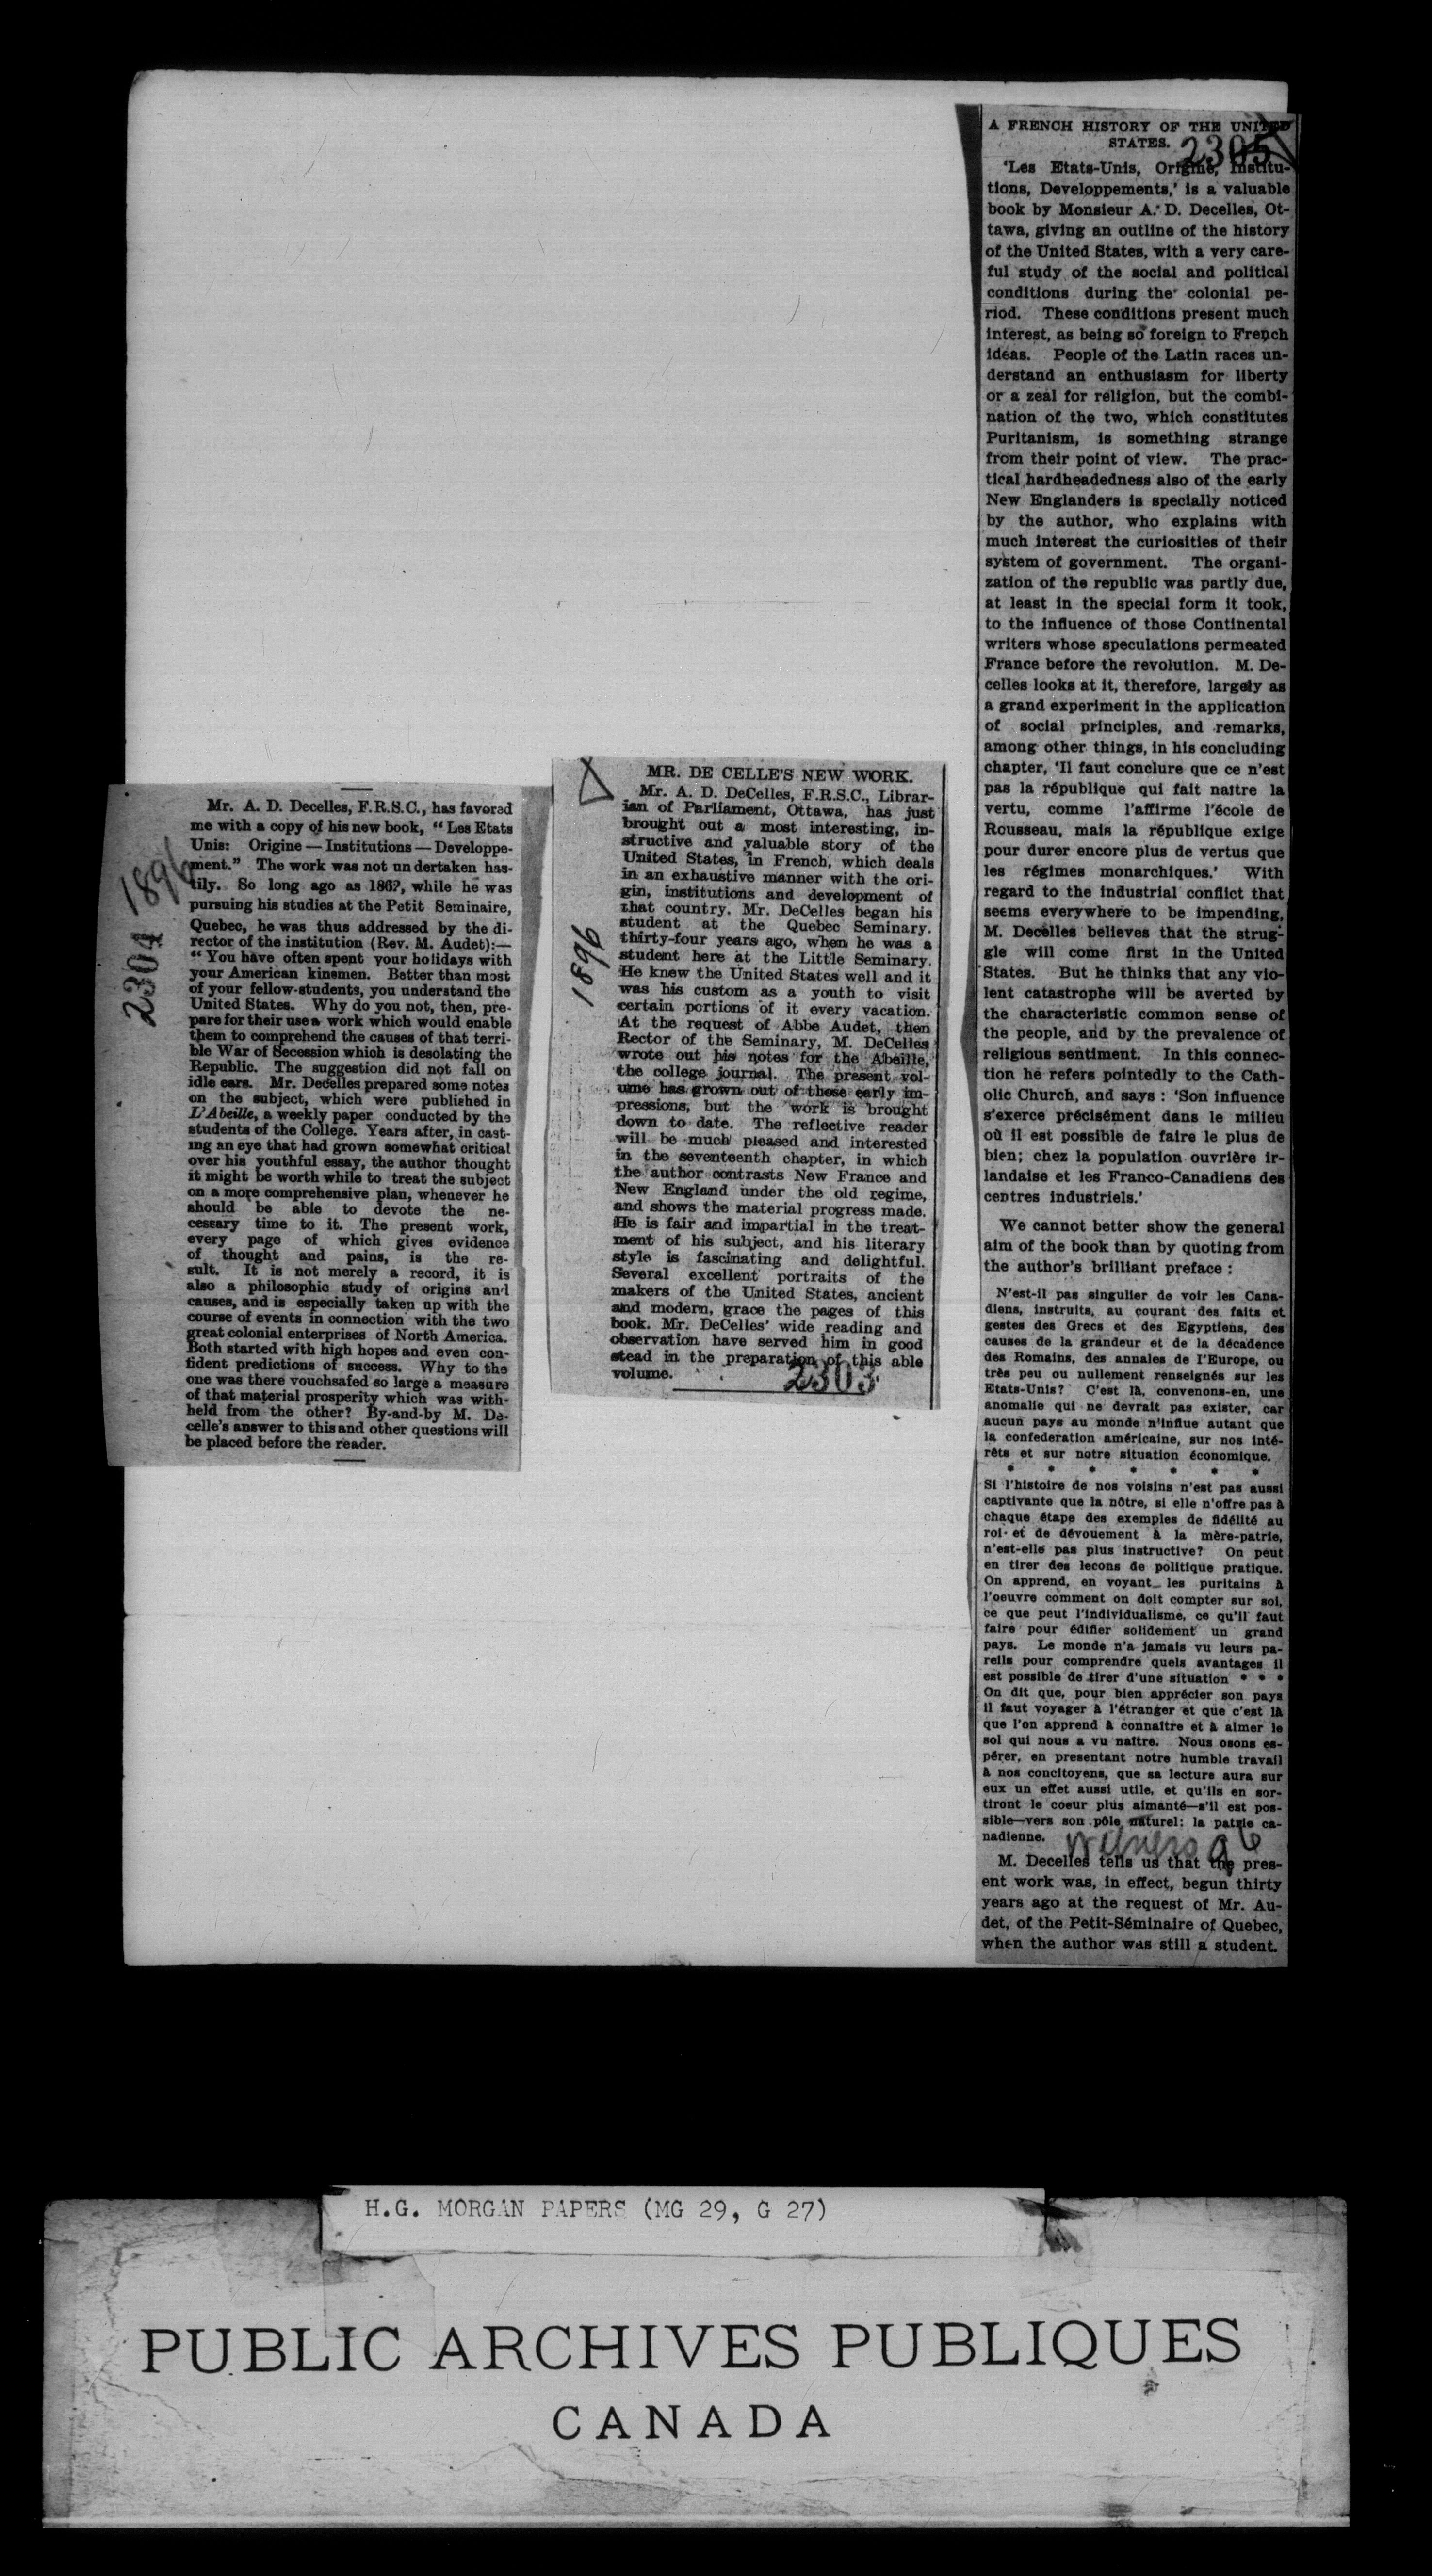 Mr. A. D. Decelles, F.R.S.C., has favored
me with a copy of his new book, “Les Etats
Unis: Origine — Institutions — Developpe-
ment.” The work was not undertaken has-
tily. So long ago as 186?, while he was
pursuing his studies at the Petit Seminaire,
Quebec, he was thus addressed by the di-
rector of the institution (Rev. M. Audet):—
“You have often spent your holidays with
your American kinsmen. Better than most
of your fellow-students, you understand the
United States. Why do you not, then, pre-
pare for their use a work which would enable
them to comprehend the causes of that terri-
ble War of Secession which is desolating the
Republic. The suggestion did not fall on
idle ears. Mr. Decelles prepared some notes
on the subject, which were published in
L'Abeille, a weekly paper conducted by the
students of the College. Years after, in cast-
ing an eye that had grown somewhat critical
over his youthful essay, the author thought
it might be worth while to treat the subject
on a more comprehensive plan, whenever he
should be able to devote the ne-
cessary time to it. The present work,
every page of which gives evidence
of thought and pains, is the re-
sult. It is not merely a record, it is
also a philosophic study of origins and
causes, and is especially taken up with the
course of events in connection with the two
great colonial enterprises of North America.
Both started with high hopes and even con-
fident predictions of success. Why to the
one was there vouchsafed so large a measure
of that material prosperity which was with-
held from the other? By-and-by M. De-
celle's answer to this and other questions will
be placed before the reader.
1896
2304
MR. DE CELLE'S NEW WORK.
Mr. A. D. DeCelles, F.R.S.C., Librar-
ian of Parliament, Ottawa, has just
brought out a most interesting, in-
structive and valuable story of the
United States, in French, which deals
in an exhaustive manner with the ori-
gin, institutions and development of
that country. Mr. DeCelles began his
student at the Quebec Seminary.
thirty-four years ago, when he was a
student here at the Little Seminary.
He knew the United States well and it
was his custom as a youth to visit
certain portions of it every vacation.
At the request of Abbe Audet, then
Rector of the Seminary, M. DeCelles
wrote out his notes for the Abeille,
the college journal. The present vol-
ume has grown out of those early im-
pressions, but the work is brought
down to date. The reflective reader
will be much pleased and interested
in the seventeenth chapter, in which
the author contrasts New France and
New England under the old regime,
and shows the material progress made.
He is fair and impartial in the treat-
ment of his subject, and his literary
style is fascinating and delightful.
Several excellent portraits of the
makers of the United States, ancient
and modern, grace the pages of this
book. Mr. DeCelles' wide reading and
observation have served him in good
stead in the preparation of this able
volume.
2303
1896
A FRENCH HISTORY OF THE UNITED
STATES.
2305
'Les Etats-Unis, Origine, Institu-
tions, Developpements,' is a valuable
book by Monsieur A. D. Decelles, Ot-
tawa, giving an outline of the history
of the United States, with a very care-
ful study of the social and political
conditions during the colonial pe-
riod. These conditions present much
interest, as being so foreign to French
ideas. People of the Latin races un-
derstand an enthusiasm for liberty
or a zeal for religion, but the combi-
nation of the two, which constitutes
Puritanism, is something strange
from their point of view. The prac-
tical hardheadedness also of the early
New Englanders is specially noticed
by the author, who explains with
much interest the curiosities of their
system of government. The organi-
zation of the republic was partly due,
at least in the special form it took,
to the influence of those Continental
writers whose speculations permeated
France before the revolution. M. De-
celles looks at it, therefore, largely as
a grand experiment in the application
of social principles, and remarks,
among other things, in his concluding
chapter, 'Il faut conclure que ce n'est
pas la république qui fait naitre la
vertu, comme l'affirme l'école de
Rousseau, mais la république exige
pour durer encore plus de vertus que
les régimes monarchiques.' With
regard to the industrial conflict that
seems everywhere to be impending,
M. Decelles believes that the strug-
gle will come first in the United
States. But he thinks that any vio-
lent catastrophe will be averted by
the characteristic common sense of
the people, and by the prevalence of
religious sentiment. In this connec-
tion he refers pointedly to the Cath-
olic Church, and says : 'Son influence
s'exerce précisément dans le milieu
où il est possible de faire le plus de
bien; chez la population ouvrière ir-
landaise et les Franco-Canadiens des
centres industriels.'
We cannot better show the general
aim of the book than by quoting from
the author's brilliant preface :
N'est-il pas singulier de voir les Cana-
diens, instruits, au courant des faits et
gestes des Grecs et des Egyptiens, des
causes de la grandeur et de la décadence
des Romains, des annales de l'Europe, ou
très peu ou nullement renseignés sur les
Etats-Unis? C'est là, convenons-en, une
anomalie qui ne devrait pas exister, car
aucun pays au monde n'influe autant que
la confederation américaine, sur nos inté-
rêts et sur notre situation économique.
* * * * * * *
Si l'histoire de nos voisins n'est pas aussi
captivante que la nôtre, si elle n'offre pas à
chaque étape des exemples de fidélité au
roi et de dévouement à la mère-patrie,
n'est-elle pas plus instructive? On peut
en tirer des lecons de politique pratique.
On apprend, en voyant les puritains à
l'oeuvre comment on doit compter sur soi,
ce que peut l'individualisme, ce qu'il faut
faire pour édifier solidement un grand
pays. Le monde n'a jamais vu leurs pa-
reils pour comprendre quels avantages il
est possible de tirer d'une situation * * *
On dit que, pour bien apprécier son pays
il faut voyager à l'étranger et que c'est là
que l'on apprend à connaître et à aimer le
sol qui nous a vu naître. Nous osons es-
pérer, en presentant notre humble travail
à nos concitoyens, que sa lecture aura sur
eux un effet aussi utile, et qu'ils en sor-
tiront le coeur plus aimanté—s'il est pos-
sible—vers son pôle naturel: la patrie ca-
nadienne.
Witness 96
M. Decelles tells us that the pres-
ent work was, in effect, begun thirty
years ago at the request of Mr. Au-
det, of the Petit-Séminaire of Quebec,
when the author was still a student.
H.G. MORGAN PAPERS (MG 29, G 27)
PUBLIC ARCHIVES PUBLIQUES
CANADA